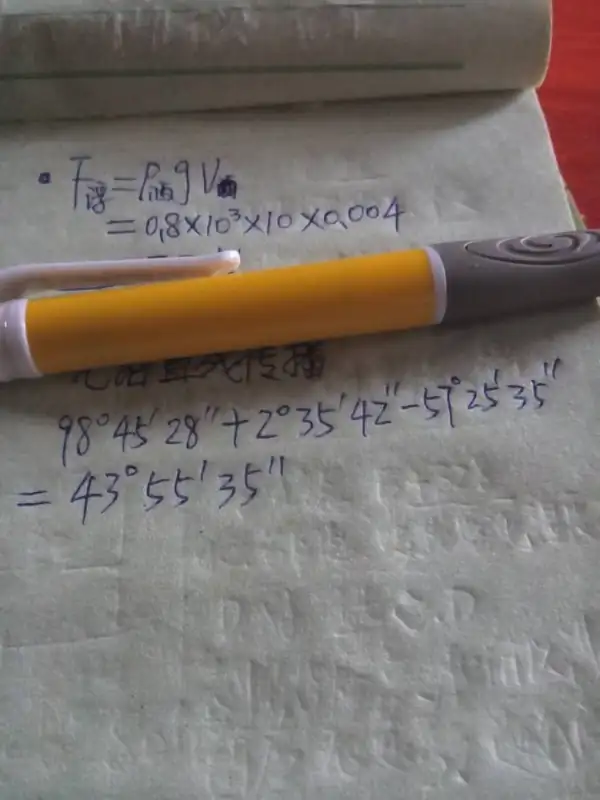 F浮=ρ酒gV
=0.8×10³×10×0.004
沿直线传播
98°45′28″+2°35′42″-57°25′35″
=43°55′35″